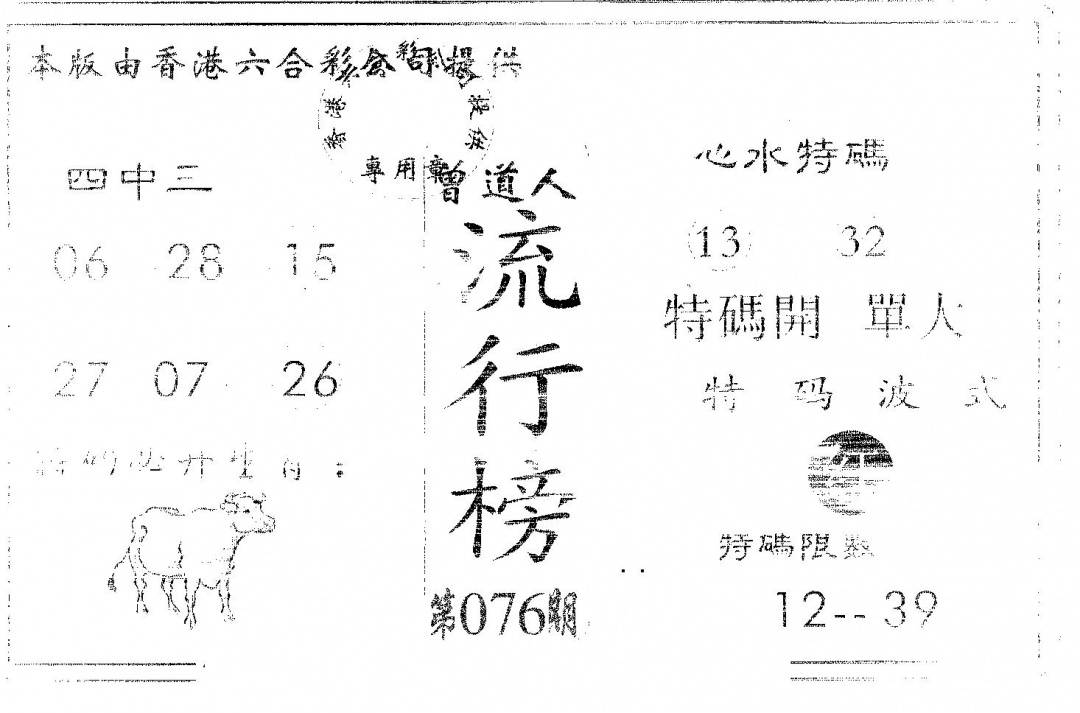 本版由香港六合彩公司提供
香港 彩 提供
專用章
四中三
06 28 15
27 07 26
特码必开生肖：
曾道人
流行榜
第076期
心水特碼
13 32
特碼開 單人
特码波式
特碼限数
12--39